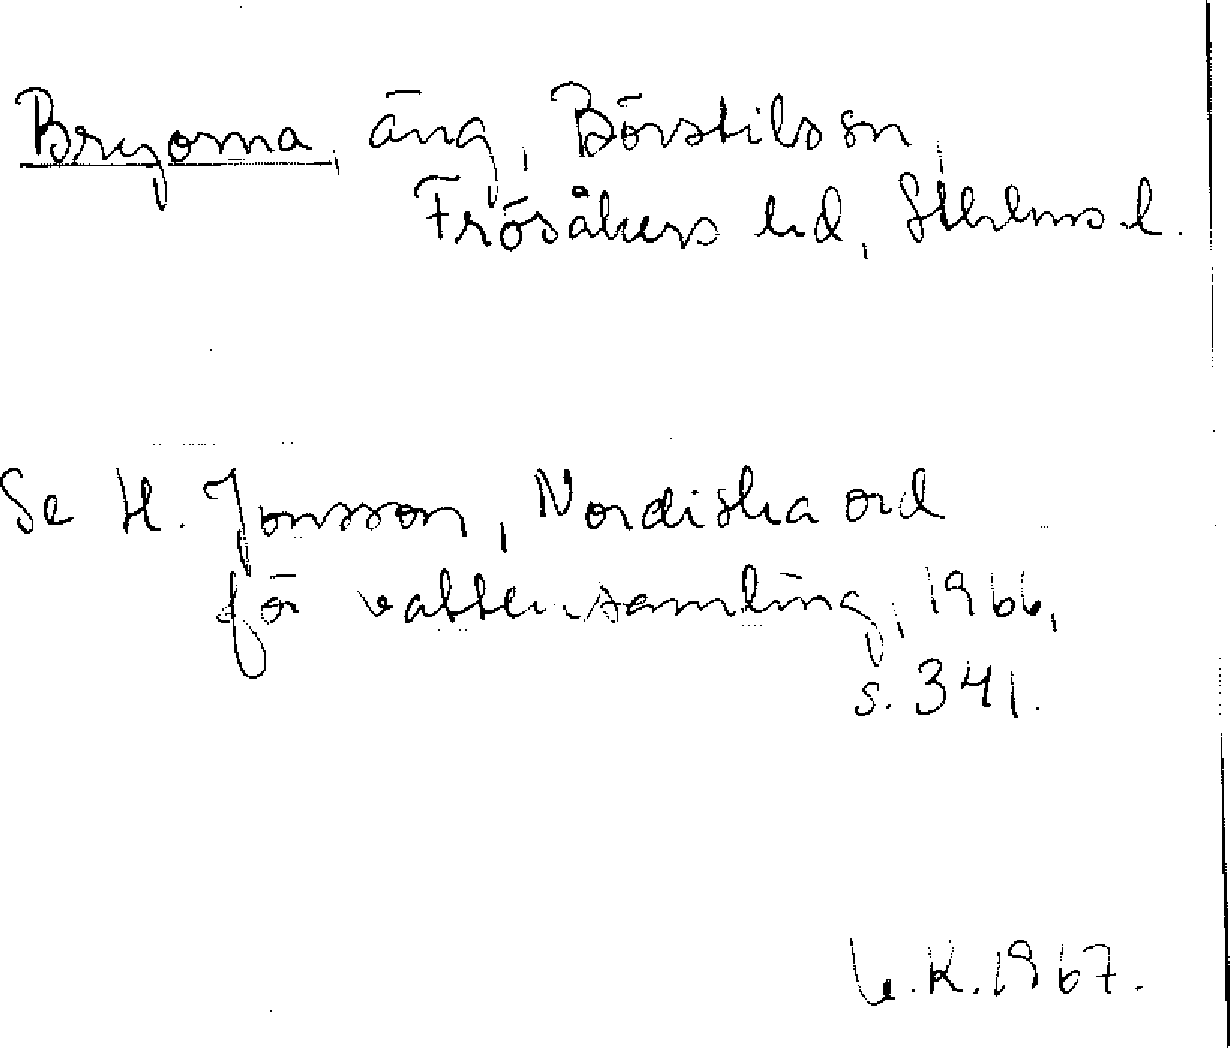 Bryorna, äng, Börstils sn,
Frösåkers hd, Sthlms l.
Se H. Jonsson, Nordiska ord
för vattensamling, 1966,
s. 341.
K. 1967.